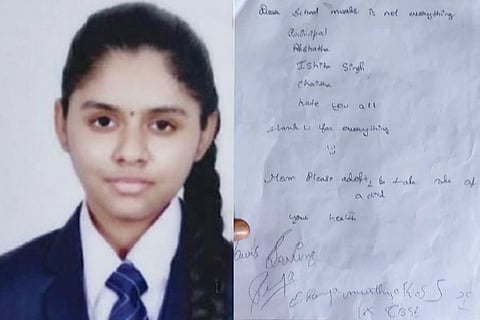 Dear School marks is not everything
Principal
Akshatha
Ishita Singh
Chaitha
hate you all
thank u for everything
Mam Please adopt & take care of
a child
your health
IX CBSE